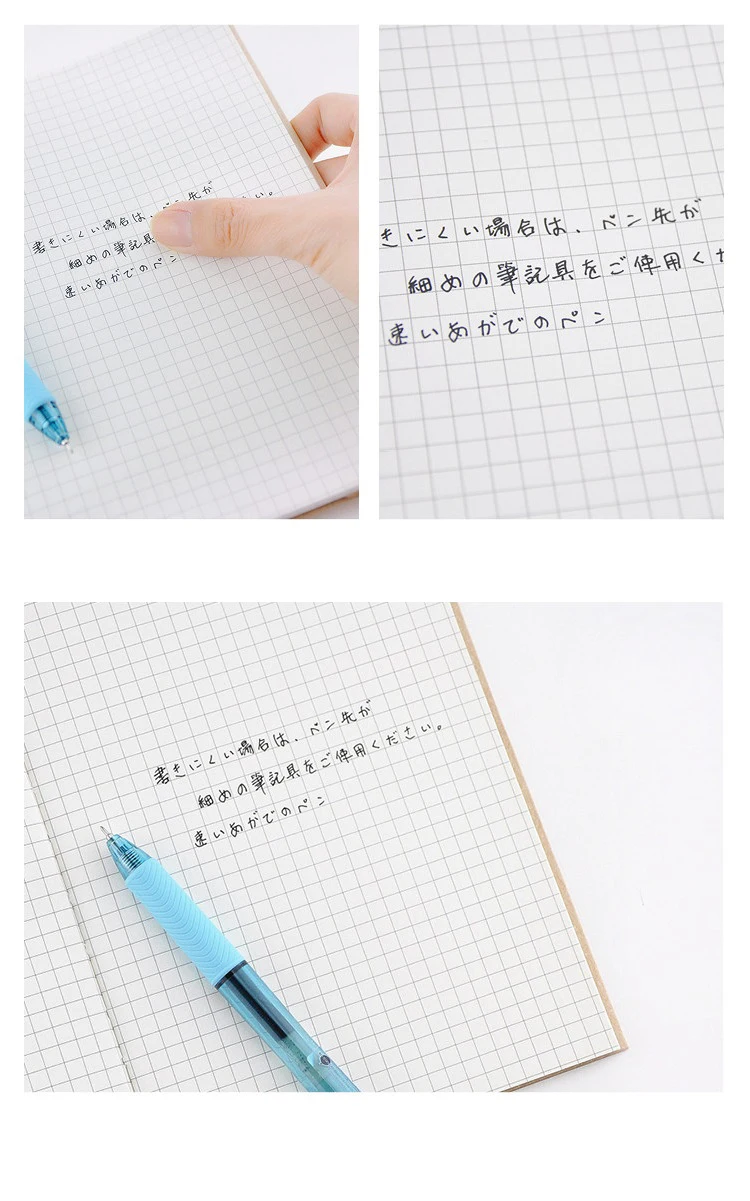 書きにくい場合は、ペン先が
細めの筆記具 い。
速いあがでのペン
きにくい場合は、ペン先が
細めの筆記具をご使用くだ
速いあがでのペン
書きにくい場合は、ペン先が
細めの筆記具をご使用ください。
速いあがでのペン